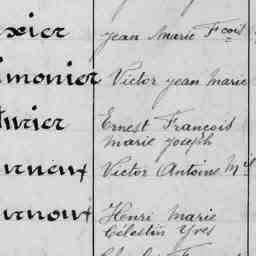 xier Jean Marie Fcois
monier Victor Jean Marie
turier Ernest François
Marie Joseph
urneux Victor Antoine Mel
urnoux Henri Marie
Célestin Yves